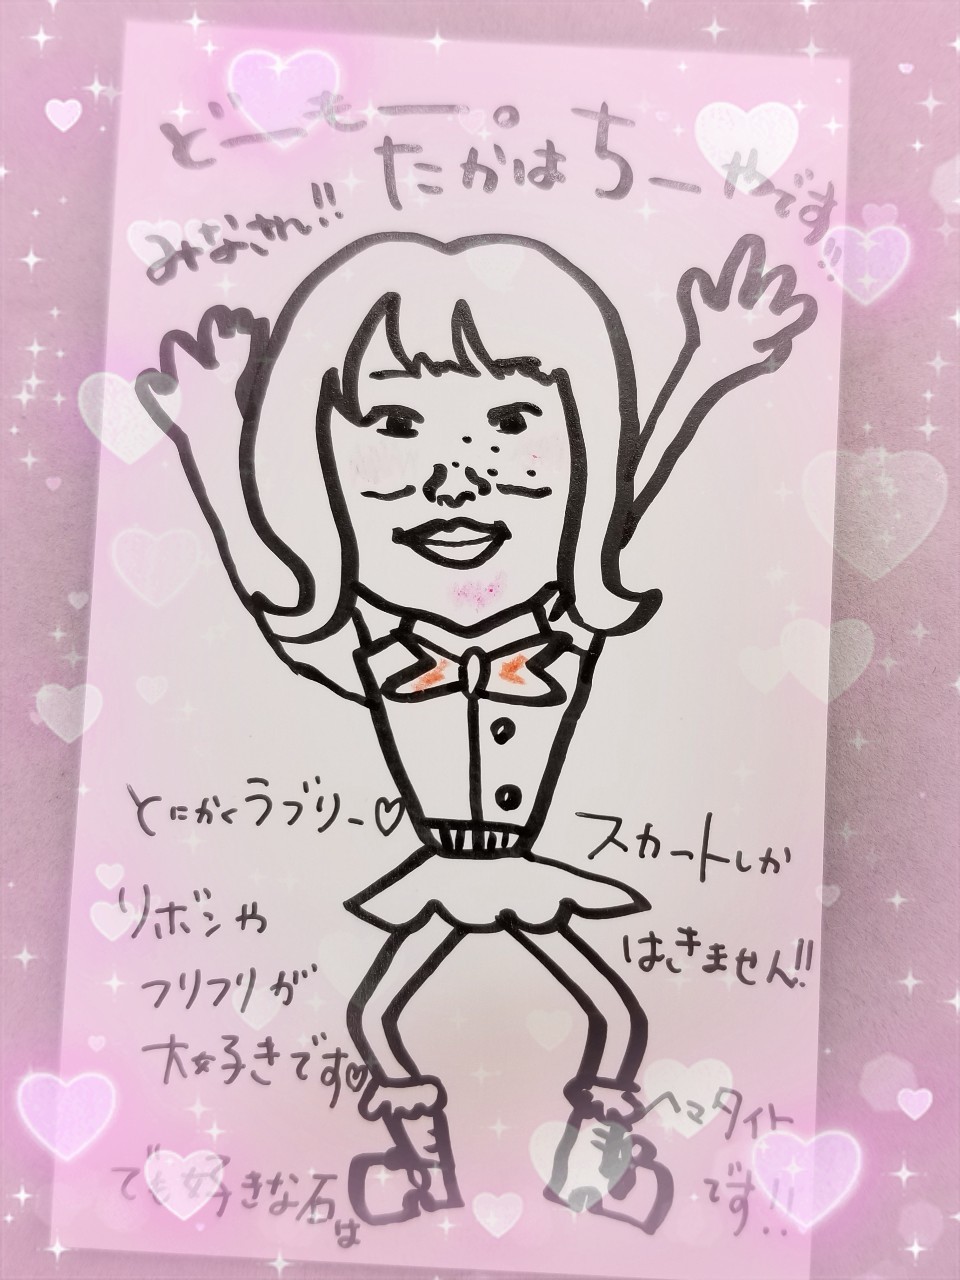 どーもー。
みなさん!!
たかはちーやです!!
とにかくラブリー♡
リボンや
フリフリが
大好きです♡
スカートしか
はきません!!
でも好きな石は
ヘマタイト
です!!